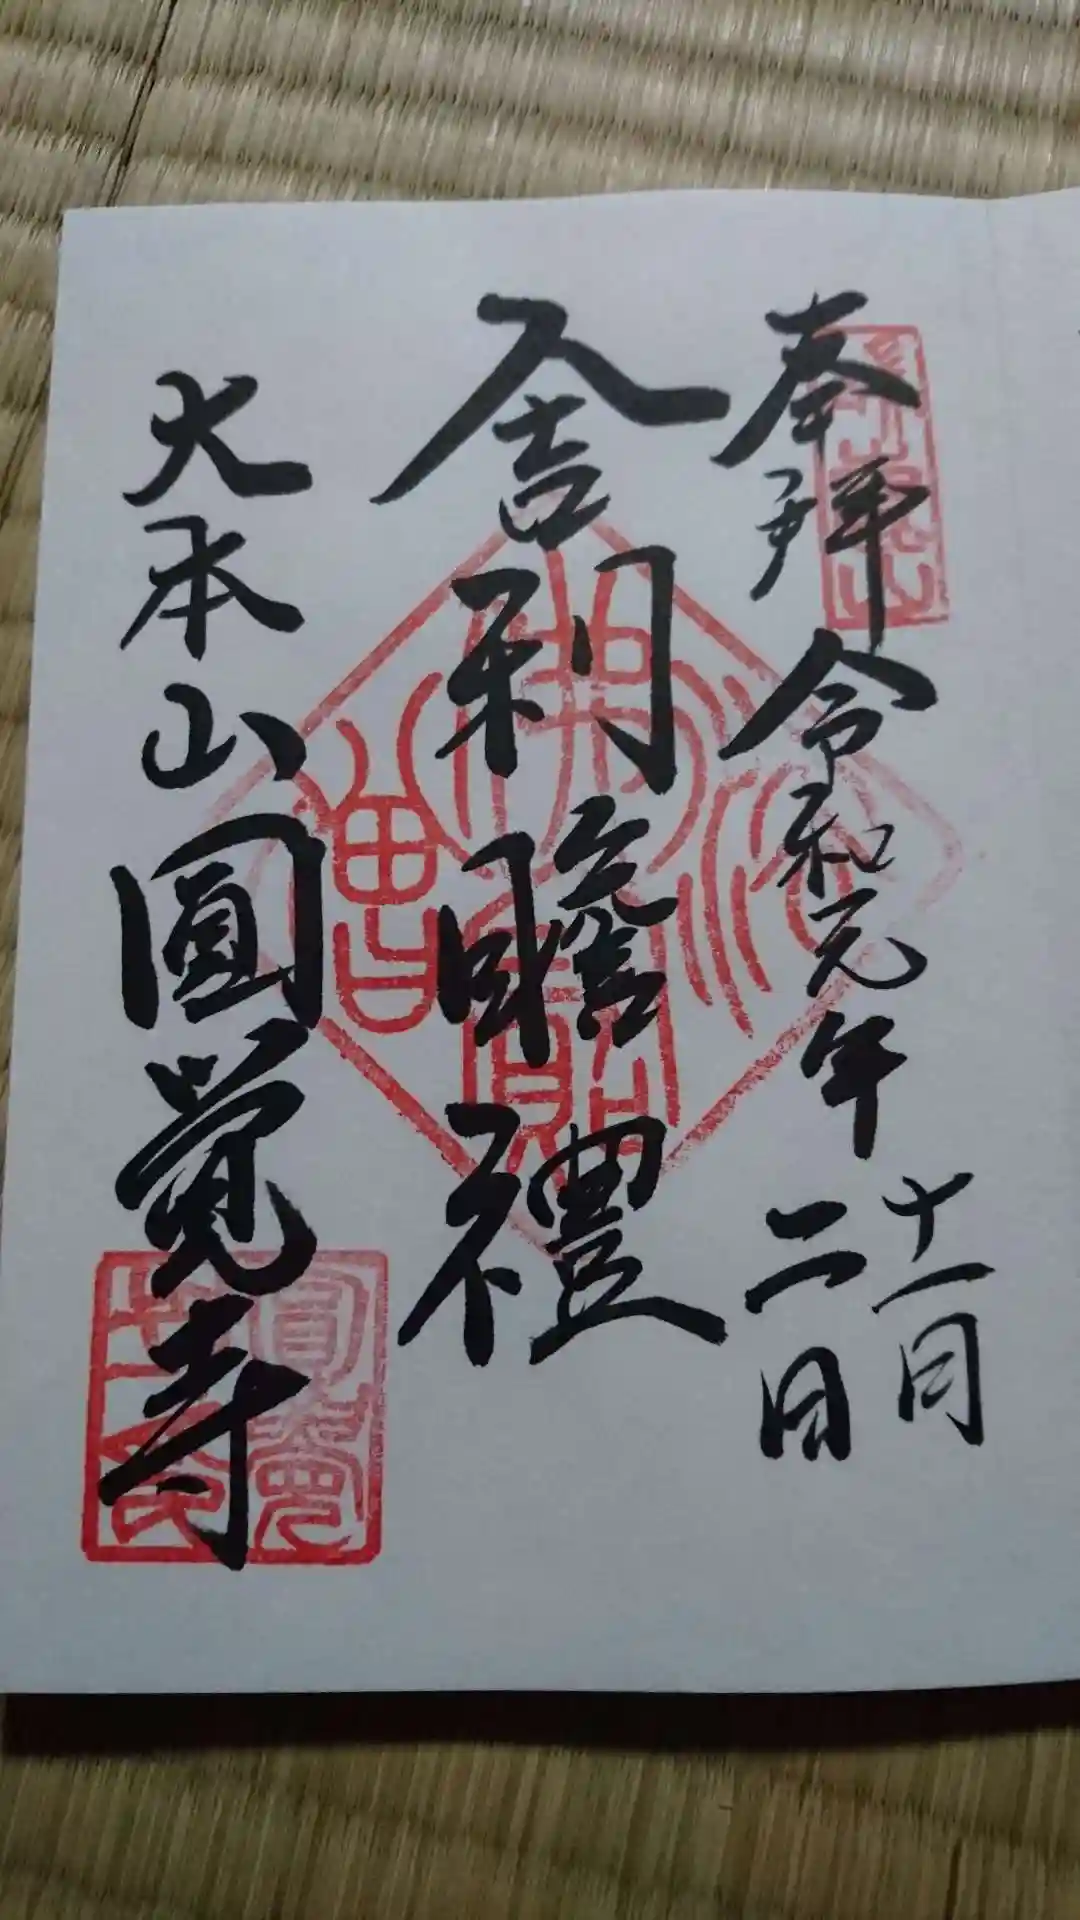 奉拜
令和元年
十一月
二日
舎利瞻禮
大本山圓覺寺
佛法僧寳